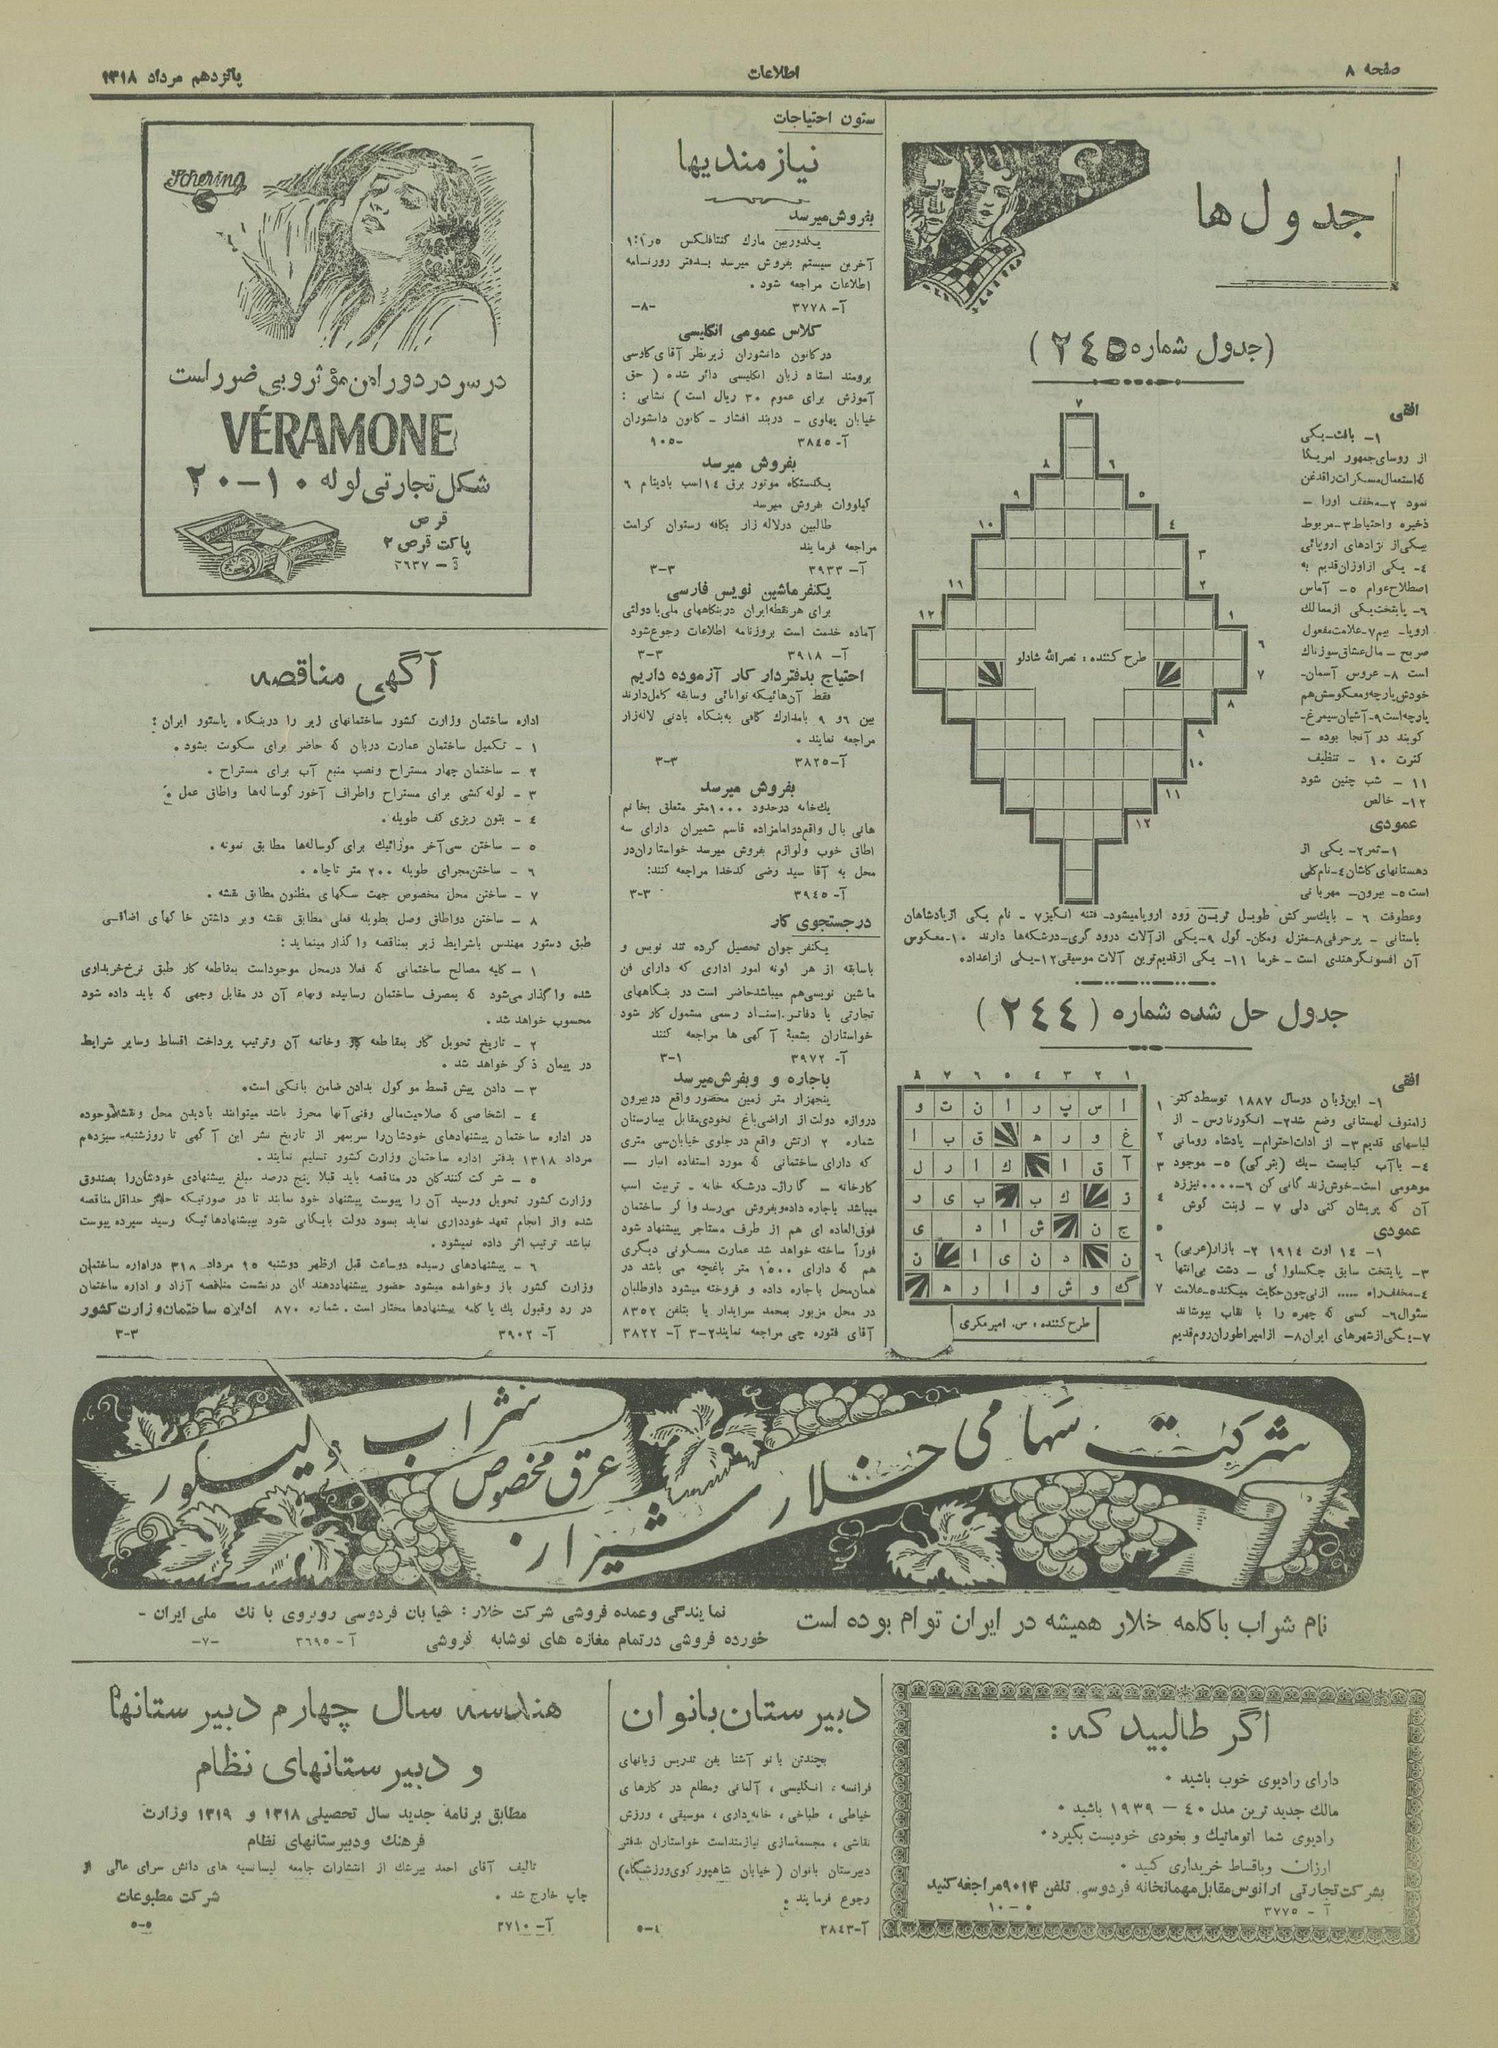 صفحه ۸
اطلاعات
پانزدهم مرداد ۱۳۱۸
جدول ها
(جدول شماره ۲۴۵)
افقی
۱- بافت-یکی
از روسای جمهور امریکا
که استعمال مسکرات را قدغن
نمود ۲-مخفف اورا -
ذخیره و احتیاط ۳-مربوط
بیکی از نژادهای اروپائی
۴- یکی از اوزان قدیم به
اصطلاح عوام ۵- آماس
۶- پایتخت یکی از ممالک
اروپا- بیم ۷-علامت مفعول
صریح - مال عشاق سوزناک
است ۸- عروس آسمان-
خودش پارچه و معکوسش هم
پارچه است ۹-آشیان سیمرغ-
گویند در آنجا بوده -
کثرت ۱۰ - تنظیف
۱۱ - شب چنین شود
۱۲- خالص
عمودی
۱-تمر ۲- یکی از
دهستانهای کاشان ۴-نام کلی
است ۵- بیرون- مهربانی
وعطوفت ۶ - بایک سرکش طویل ترین رود اروپا میشود- فتنه انگیز ۷ - نام یکی از پادشاهان
باستانی - پرحرفی ۸-منزل ومکان- گول ۹-یکی از آلات درودگری-درشکه‌ها دارند ۱۰-معکوس
آن افسونگر هندی است - خرما ۱۱- یکی از قدیم‌ترین آلات موسیقی ۱۲-یکی از اعداد
۷
۸ ۶
۹ ۵
۱۰ ۴
۳
۱۱ ۲
۱۲ ۱
۶
طرح کننده : نصرالله شادلو
۷
۸
۹
۱۰
۱۱
۱۲
جدول حل شده شماره (۲۴۴)
افقی
۱- این زبان درسال ۱۸۸۷ توسط دکتر
زامنوف لهستانی وضع شد ۲- انگور نارس - از
لباسهای قدیم ۳- از ادات احترام- پادشاه رومانی
۴- باآب کبابست -بك (بترکی) ۵- موجود
موهومی است-خوش زندگانی کن ۶-۰۰۰۰نیزرد
آن که پریشان کنی دلی ۷ - زینت گوش
عمودی
۱- ۱۴ اوت ۱۹۱۴ ۲- بازار (عربی)
۳- پایتخت سابق چکسلواکی - دشت بی‌انتها
۴-مخفف راه ..... از نی چون حکایت میکند ۵-علامت
سئوال ۶- کسی که چهره را با نقاب بپوشاند
۷-یکی از شهرهای ایران ۸- از امپراطوران روم قدیم
۱ ۲ ۳ ۴ ۵ ۶ ۷ ۸
۱ ا س پ ر ا ن ت و
۲ غ و ر ه ق ب ا
۳ آ ق ا ك ا ر ل
۴ ز ك ب ب ی ر
۵ ج ن ش ا د ی
۶ ن د ن ی ا ن
۷ گ و ش و ا ر ه
طرح کننده : س. امیر مکری
ستون احتیاجات
نیازمندیها
بفروش میرسد
یکدوربین مارک کنتافلکس ۱:۱ر۵
آخرین سیستم بفروش میرسد بدفتر روزنامه
اطلاعات مراجعه شود .
آ- ۳۷۷۸ -۸-
کلاس عمومی انگلیسی
در کانون دانشوران زیر نظر آقای کاوسی
برومند استاد زبان انگلیسی دائر شده ( حق
آموزش برای عموم ۳۰ ریال است ) نشانی :
خیابان پهلوی - دربند افشار - کانون دانشوران
آ- ۳۸۴۵ ۱۰-۵
بفروش میرسد
یکدستگاه موتور برق ۱۴ اسب بادینام ۶
کیلووات بفروش میرسد
طالبین در لاله زار بکافه رستوران کرامت
مراجعه فرمایند
آ- ۳۹۳۳ ۳-۳
یکنفر ماشین نویس فارسی
برای هر نقطه ایران در بنگاههای ملی یا دولتی
آماده خدمت است بروزنامه اطلاعات رجوع شود
آ- ۳۹۱۸ ۳-۳
احتیاج بدفتردار کار آزموده داریم
فقط آن‌هائیکه توانائی وسابقه کامل دارند
بین ۶ و ۹ بامدارک کافی به‌بنگاه بادنی لاله‌زار
مراجعه نمایند .
آ-۳۸۲۵ ۳-۳
بفروش میرسد
یک‌خانه درحدود ۱۰۰۰متر متعلق بخانم
هانی بال واقع درامامزاده قاسم شمیران دارای سه
اطاق خوب و لوازم بفروش میرسد خواستاران در
محل به آقا سید رضی کدخدا مراجعه کنند:
آ- ۳۹۴۵ ۳-۳
درجستجوی کار
یکنفر جوان تحصیل کرده تند نویس و
باسابقه از هر گونه امور اداری که دارای فن
ماشین نویسی هم میباشد حاضر است در بنگاههای
تجارتی یا دفاتر اسناد رسمی مشمول کار شود
خواستاران بشعبهٔ آگهی ها مراجعه کنند
آ- ۳۹۷۲ ۳-۱
باجاره و بفروش میرسد
پنجهزار متر زمین محصور واقع در بیرون
دروازه دولت از اراضی باغ نخودی مقابل بیمارستان
شماره ۲ ارتش واقع در جلوی خیابان سی متری
که دارای ساختمانی که مورد استفاده انبار -
کارخانه - گاراژ- درشکه خانه - تربیت اسب
میباشد باجاره داده و بفروش می‌رسد و اگر ساختمان
فوق‌العاده ای هم از طرف مستاجر پیشنهاد شود
فوراً ساخته خواهد شد عمارت مسکونی دیگری
هم که دارای ۱۵۰۰ متر باغچه می باشد در
همان محل باجاره داده و فروخته میشود داوطلبان
در محل مزبور بمحمد سرایدار یا بتلفن ۸۳۵۲
آقای فتوره چی مراجعه نمایند ۲-۳ آ- ۳۸۲۲
Schering
درسر درد ورا من مؤثر و بی ضرر است
VÉRAMONE
شکل تجارتی لوله ۱۰-۲۰
قرص
پاکت قرص ۲
آ - ۳۶۳۷
آگهی مناقصه
اداره ساختمان وزارت کشور ساختمانهای زیر را دربنگاه پاستور ایران :
۱ - تکمیل ساختمان عمارت دربان که حاضر برای سکونت بشود .
۲ - ساختمان چهار مستراح و نصب منبع آب برای مستراح .
۳ - لوله کشی برای مستراح و اطراف آخور گوساله‌ها و اطاق عمل .
۴ - بتون ریزی کف طویله .
۵ - ساختن سی آخر موزائیک برای گوساله‌ها مطابق نمونه .
۶ - ساختن مجرای طویله ۲۰۰ متر تاچاه .
۷ - ساختن محل مخصوص جهت سگهای مظنون مطابق نقشه .
۸ - ساختن دو اطاق وصل بطویله فعلی مطابق نقشه وبر داشتن خاکهای اضافی
طبق دستور مهندس باشرایط زیر بمناقصه واگذار مینماید :
۱ - کلیه مصالح ساختمانی که فعلا درمحل موجود است بمقاطعه کار طبق نرخ خریداری
شده واگذار می‌شود که بمصرف ساختمان رسانیده وبهاء آن در مقابل وجهی که باید داده شود
محسوب خواهد شد .
۲ - تاریخ تحویل کار بمقاطعه کار وخاتمه آن وترتیب پرداخت اقساط وسایر شرایط
در پیمان ذکر خواهد شد .
۳ - دادن پیش قسط موکول بدادن ضامن بانکی است .
۴ - اشخاصی که صلاحیت مالی وفنی آنها محرز باشد میتوانند بادیدن محل و نقشه موجوده
در اداره ساختمان پیشنهادهای خودشان را سربمهر از تاریخ نشر این آگهی تا روزشنبه- سیزدهم
مرداد ۱۳۱۸ بدفتر اداره ساختمان وزارت کشور تسلیم نمایند .
۵ - شرکت کنندگان در مناقصه باید قبلا پنج درصد مبلغ پیشنهادی خودشان را بصندوق
وزارت کشور تحویل ورسید آن را پیوست پیشنهاد خود نمایند تا در صورتیکه حائز حداقل مناقصه
شده واز انجام تعهد خودداری نماید بسود دولت بایگانی شود پیشنهادهائیکه رسید سپرده پیوست
نباشد ترتیب اثر داده نمیشود .
۶ - پیشنهادهای رسیده دوساعت قبل ازظهر دوشنبه ۱۵ مرداد ۳۱۸ دراداره ساختمان
وزارت کشور باز وخوانده میشود حضور پیشنهاددهندگان درنشست مناقصه آزاد و اداره ساختمان
در رد وقبول یک یا کلیه پیشنهادها مختار است . شماره ۸۷۰ اداره ساختمان وزارت کشور
آ- ۳۹۰۲ ۳-۳
شرکت سهامی خلار شیراز
شراب و لیکور
عرق مخصوص
نام شراب باکلمه خلار همیشه در ایران توام بوده است
نمایندگی وعمده فروشی شرکت خلار : خیابان فردوسی روبروی بانک ملی ایران -
خورده فروشی درتمام مغازه های نوشابه فروشی آ - ۳۶۹۵ -۷-
اگر طالبید که :
دارای رادیوی خوب باشید .
مالک جدید ترین مدل ۴۰ - ۱۹۳۹ باشید .
رادیوی شما اتوماتیک و بخودی خود ایست بگیرد .
ارزان وباقساط خریداری کنید .
بشرکت تجارتی ارانوس مقابل مهمانخانه فردوسی تلفن ۹۰۱۴ مراجعه کنید
آ - ۳۷۷۵ ۱۰-۵
دبیرستان بانوان
بچندتن بانو آشنا بفن تدریس زبانهای
فرانسه ، انگلیسی ، آلمانی ومعلم در کارهای
خیاطی ، طباخی ، خانه‌داری ، موسیقی ، ورزش
نقاشی ، مجسمه‌سازی نیازمنداست خواستاران بدفتر
دبیرستان بانوان ( خیابان شاهپور کوی ورزشگاه)
رجوع فرمایند .
آ-۳۸۴۳ ۵-۴
هندسه سال چهارم دبیرستانها
و دبیرستانهای نظام
مطابق برنامه جدید سال تحصیلی ۱۳۱۸ و ۱۳۱۹ وزارت
فرهنگ ودبیرستانهای نظام
تالیف آقای احمد بیرشک از انتشارات جامعه لیسانسیه های دانش سرای عالی از
چاپ خارج شد . شرکت مطبوعات
آ-۲۷۱۰ ۵-۵